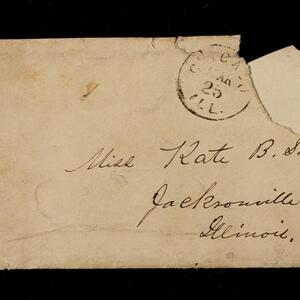 CHICAGO
MAR
25
ILL.
Miss Kate B.
Jacksonville
Illinois.